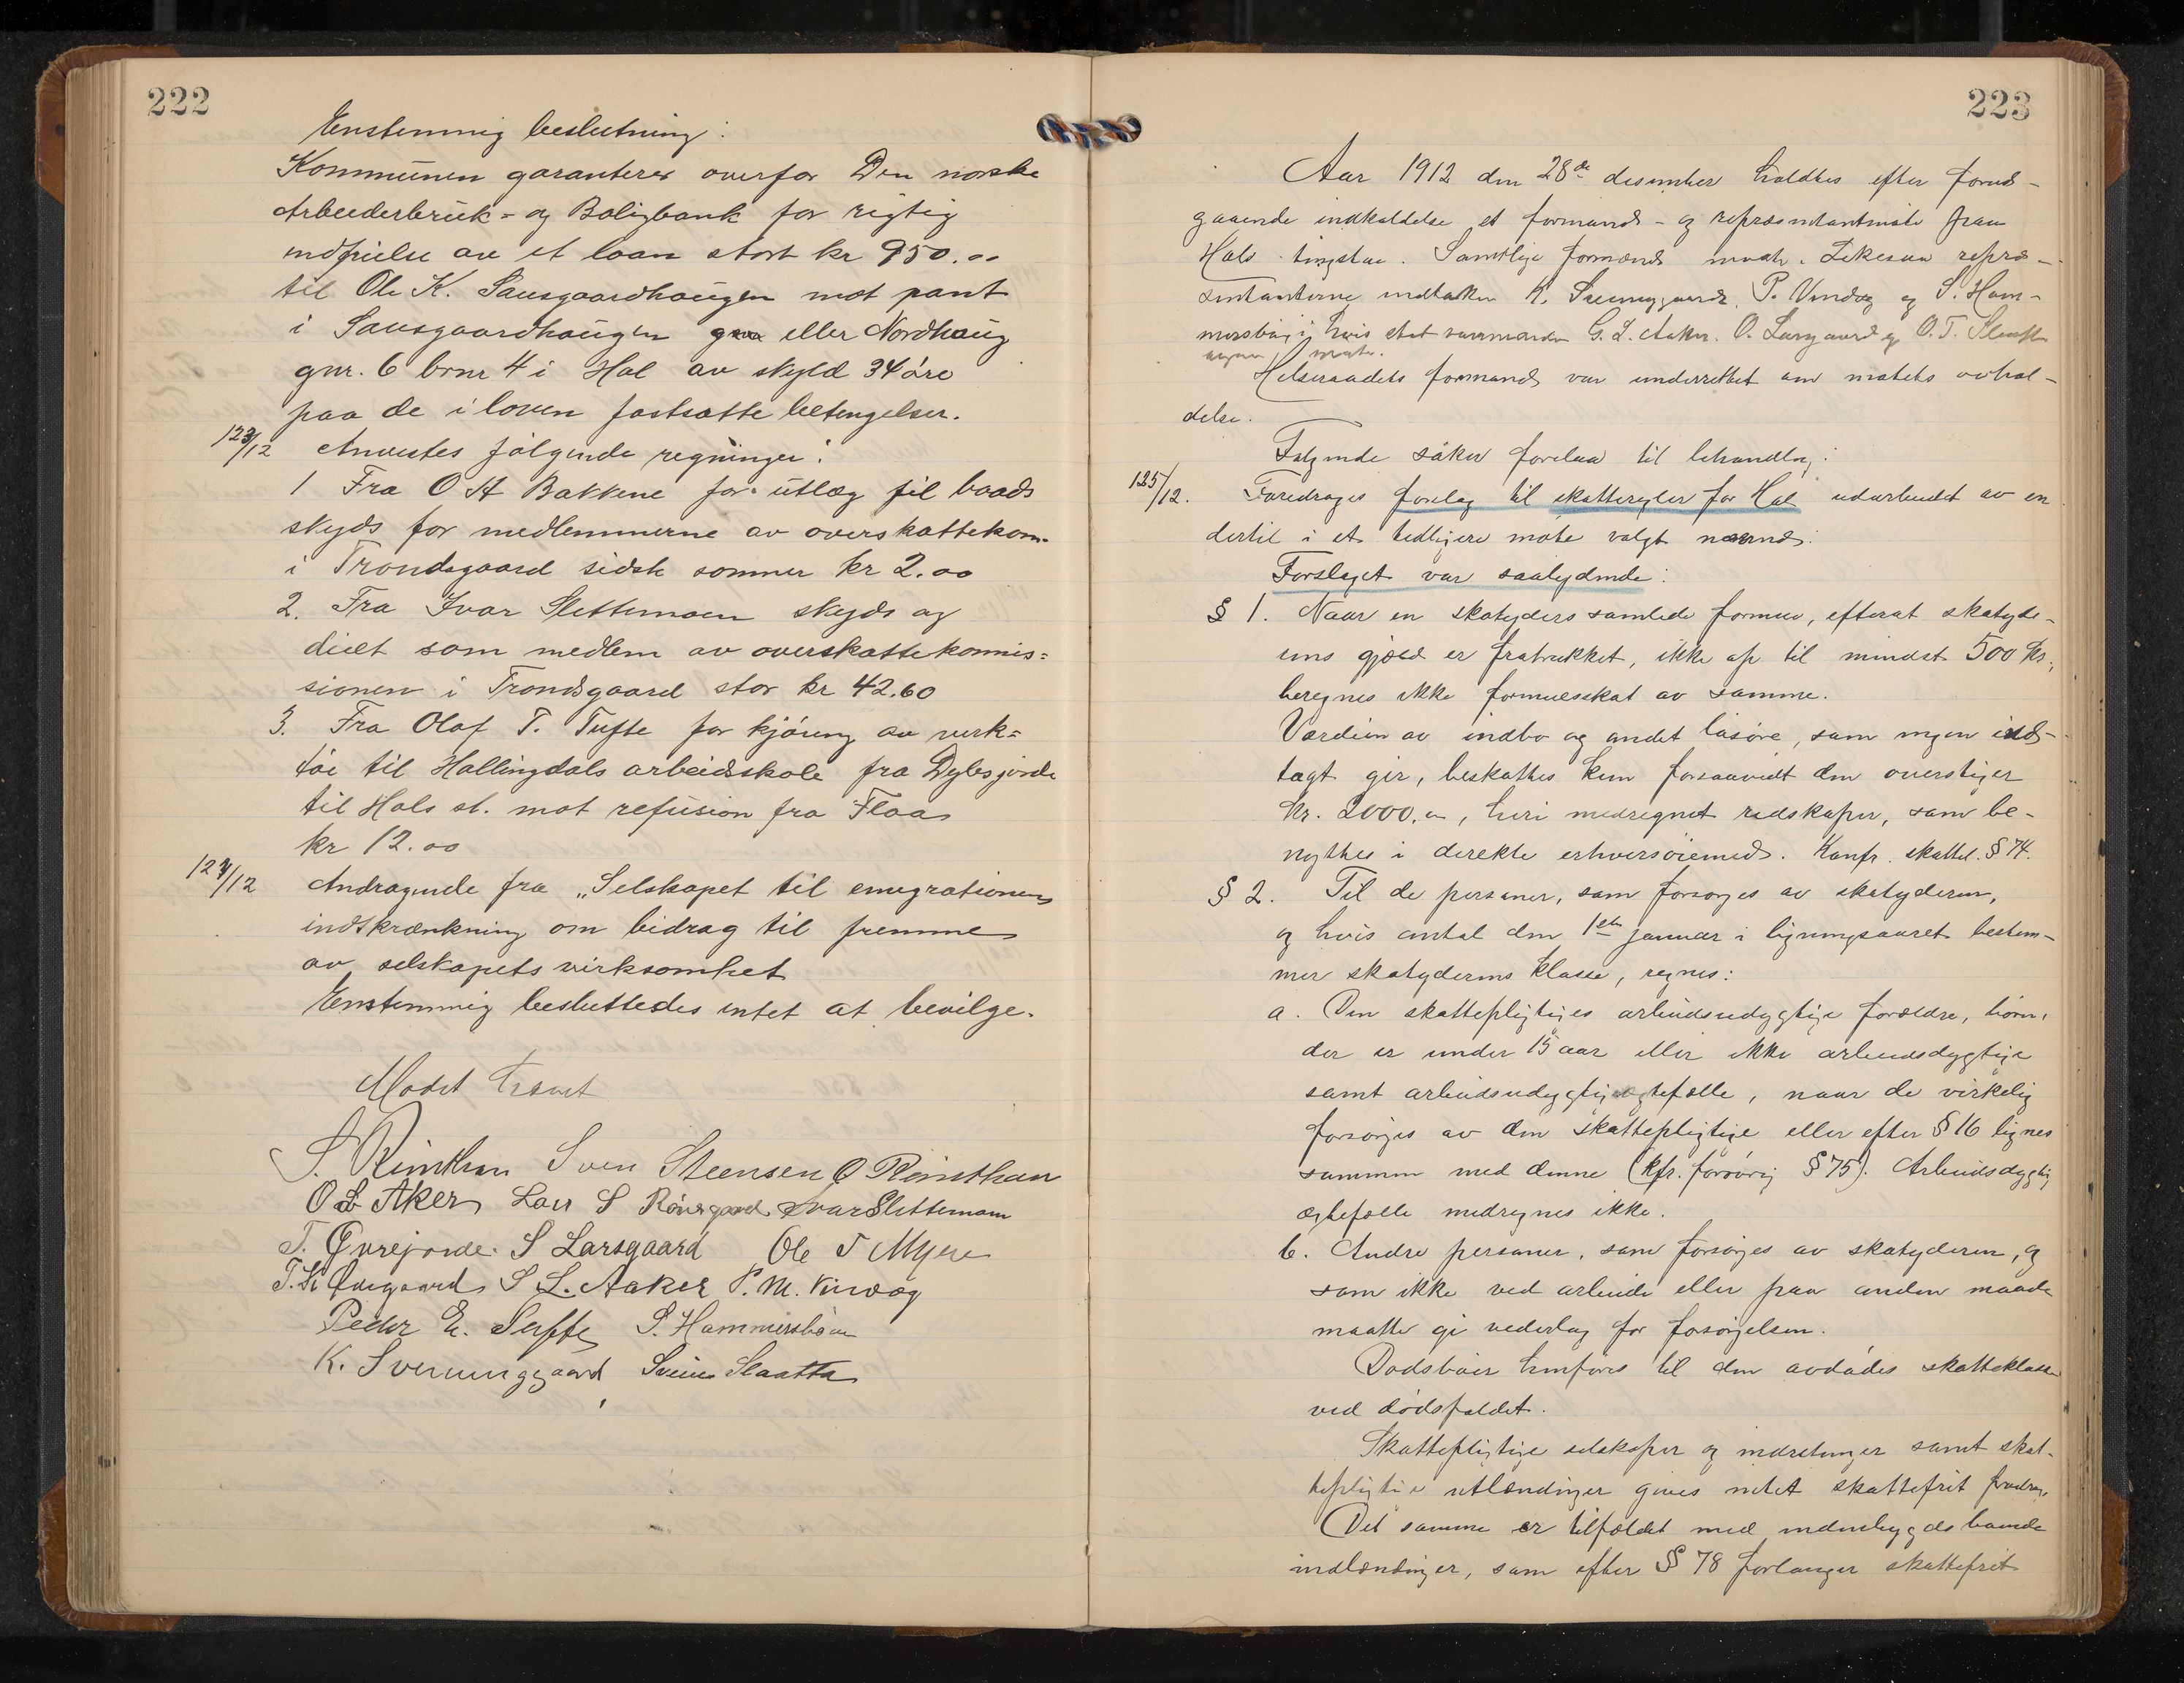 222
Enstemmig beslutning:
Kommunen garanterer overfor Den norske
Arbeiderbruk= og Boligbank for rigtig
indfrielse av et laan stort kr 950.00
til Ole K. Sausgaardhaugen mot pant
i Sausgaardhaugen eller Nordhaug
gnr. 6 brnr 4 i Hol av skyld 34 øre
paa de i loven fastsatte betengelser.
123/12 Anvistes følgende regninger:
1 Fra O A Bakkene for utlæg til baads
skyds for medlemmerne av overskattekom.
i Trondsgaard sidste sommer kr 2.00
2. Fra Ivar Slettemoen skyds og
diæt som medlem av overskattekommis=
sionen i Trondsgaard stor kr 42.60
3. Fra Olaf T. Tufte for kjøring av verk=
tøi til Hallingdals arbeidsskole fra Dyles gjorde
til Hols st. mot refusion fra Flaa
kr 12.00
124/12 Andragende fra „Selskapet til emigrationens
indskrænkning om bidrag til fremme
av selskapets virksomhet
Enstemmig besluttedes intet at bevilge.
Mødet hævet
S. Rimthun Sven Steensen O Rimthun
O L Aker Lars S Rønsgaard Ivar Slettemoen
T. Øvrejorde. S Larsgaard Ole T Myre
T. K Ødegaard S L. Aaker P. M. Vindog
Peder E. S. Hammersbøen
K. Sveinunggaard Svein Slaatta
223
Aar 1912 den 28de desember holdtes efter forud-
gaaende indkaldelse et formands- og repræsentantmøte paa
Hols tingstue. Samtlige formænd møtte. Likesaa repræ-
sentanterne undtaken K. Sveinunggaard, P. Vindog og S. Ham-
mersbøen i hvis sted varamænden G. L. Aaker. O. Larsgaard og O. T. Slaatta
møtte.
Helseraadets formand var underrettet om møtets avhol-
delse.
Følgende saker forelaa til behandling:
125/12. Foredroges forslag til skatteregler for Hol udarbeidet av en
dertil i et tidligere møte valgt nævnd:
Forslaget var saalydende:
§ 1. Naar en skatyders samlede formue, efterat skatyde-
rens gjæld er fratrukket, ikke op til mindst 500 kr,
beregnes ikke formuesskat av samme.
Værdien av indbo og andet løsøre, som ingen ind-
tægt gir, beskattes kun forsaavidt den overstiger
kr. 2000.00, heri medregnet redskaper, som be-
nyttes i direkte erhversøiemed. Konfr. skattel. § 74.
§ 2. Til de personer, som forsørges av skatyderen,
og hvis antal den 1ste januar i ligningsaaret bestem-
mer skatyderens klasse, regnes:
a. Den skattepligtiges arbeidsudygtige forældre, børn,
der er under 15 aar eller ikke arbeidsdygtige
samt arbeidsudygtig egtefælle, naar de virkelig
forsørges av den skattepligtige eller efter § 16 lignes
sammen med denne (kfr. forøvrig § 75). Arbeidsdygtig
egtefælle medregnes ikke.
b. Andre personer, som forsørges av skatyderen, og
som ikke ved arbeide eller paa anden maade
maatte gi vederlag for forsørgelsen.
Dødsboer henføres til den avdødes skatteklasse
ved dødsfaldet.
Skattepligtige selskaper og indretninger samt skat-
tepligtige utlændinger gives intet skattefrit fradrag.
Det samme er tilfældet med indenbygds boende
indlændinger, som efter § 78 forlanger skattefrit